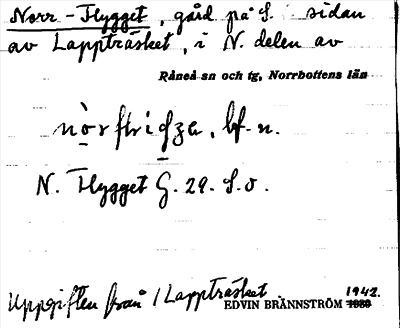 Norr-Flygget, gård på S. sidan
av Lappträsket, i N. delen av
Råneå sn och tg, Norrbottens län
bf. n.
N. Flygget G. 29. S.o.
Uppgiften från 1 Lappträsket 1942.
EDVIN BRÄNNSTRÖM 1939